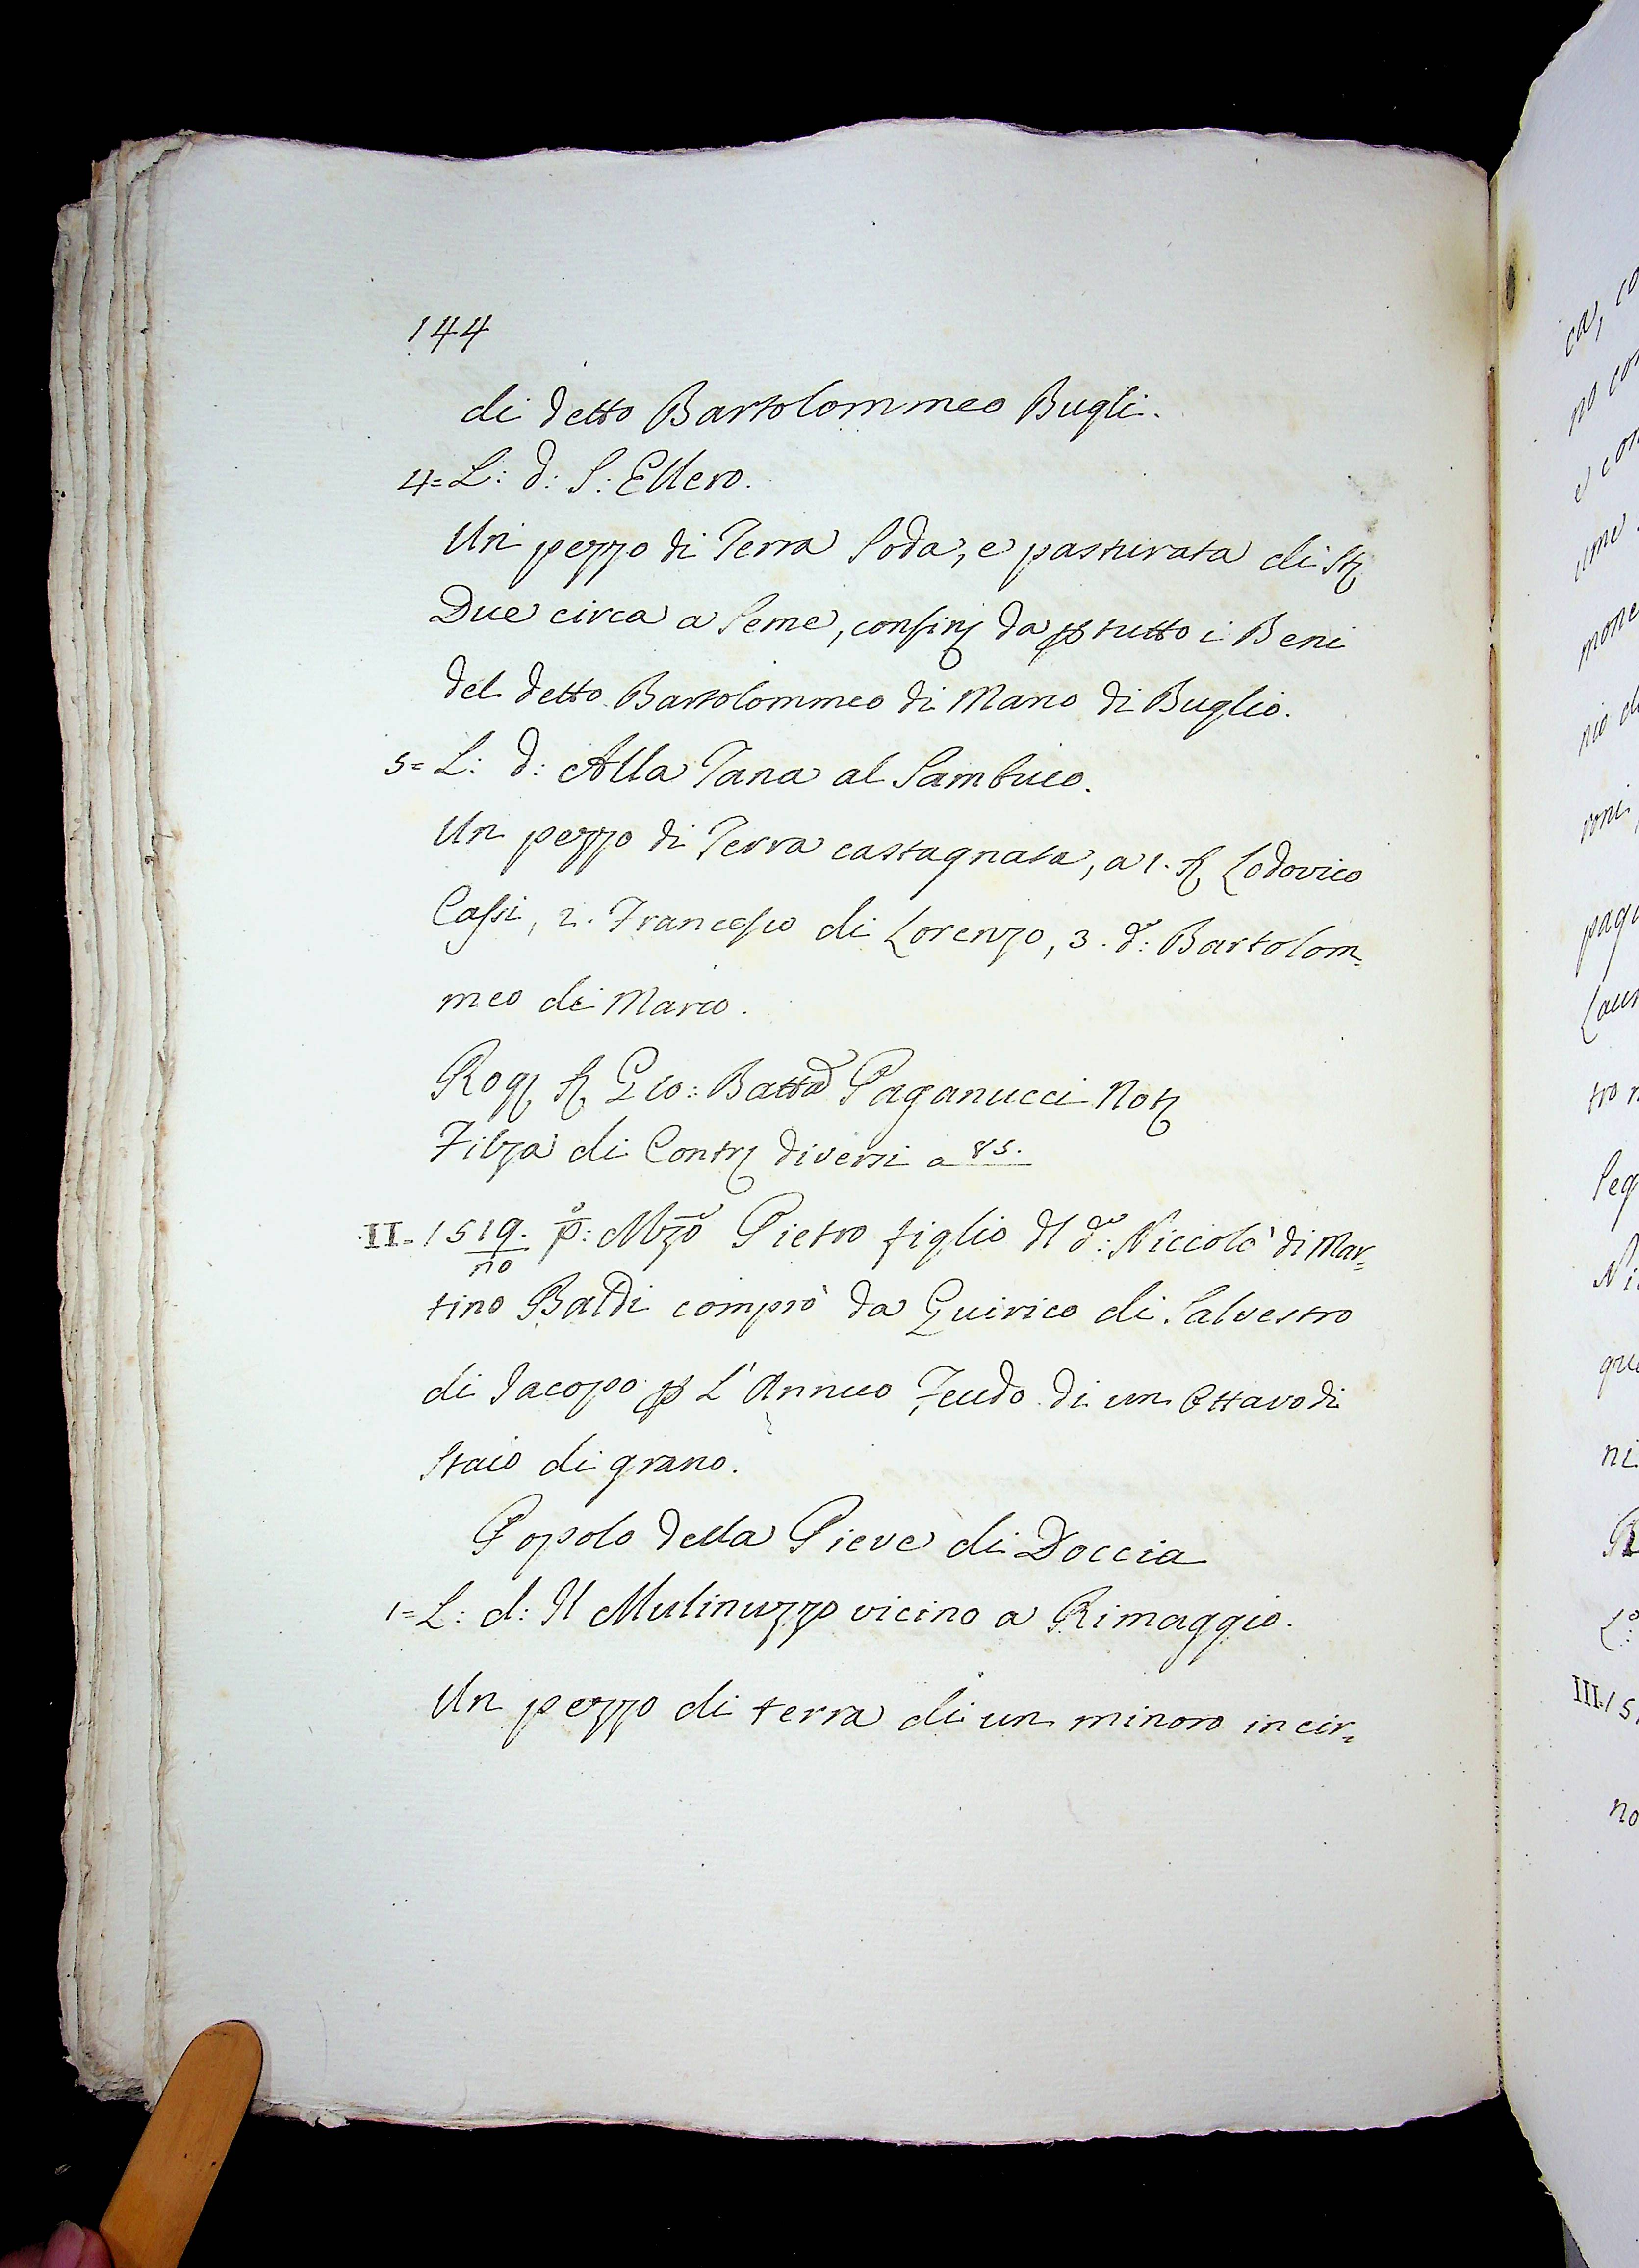 144
di detto Bartolommeo Bugli.
4= L: d: S: Ellero.
Un pezzo di Terra Soda, e pasturata di St
Due circa a Seme, confin da p tutto i Beni
del detto Bartolommeo di Marco di Buglio.
5= L: d: Alla Tana al Sambuco.
Un pezzo di Terra castagnata, a 1. S Lodovico
Cassi, 2. Francesco di Lorenzo, 3. do: Bartolom=
meo di Marco.
Rog S Gio: Batta Paganucci Not
Filza di Contr diversi a 85.
II. 1519. po: Mzo Pietro figlio dl do: Niccolò di Mar=
no
tino Baldi comprò da Quirico di Salvestro
di Jacopo p L'Annuo Feudo di un Ottavo di
Staio di grano.
Popolo della Pieve di Doccia
1= L: d: Il Mulinuzzo vicino a Rimaggio.
Un pezzo di terra di un minoro in cir=
ca, co
no con
e con
ume
mone
nio di
roni
pag
Laur
tro
Seg
Ni
que
ni
Lo:
III. 15
no